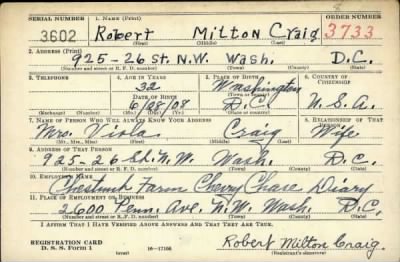 SERIAL NUMBER 1. NAME (Print) ORDER NUMBER
3602 Robert Milton Craig 3733
(First) (Middle) (Last)
2. ADDRESS (Print)
925-26 St. N.W. Wash. D.C.
(Number and street or R. F. D. number) (Town) (County) (State)
3. TELEPHONE 4. AGE IN YEARS 5. PLACE OF BIRTH 6. COUNTRY OF CITIZENSHIP
32 Washington
DATE OF BIRTH
6/28/08 D.C. U.S.A.
(Exchange) (Number) (Mo.) (Day) (Yr.) (State or country)
7. NAME OF PERSON WHO WILL ALWAYS KNOW YOUR ADDRESS 8. RELATIONSHIP OF THAT PERSON
Mrs. Viola Craig Wife
(Mr., Mrs., Miss) (First) (Middle) (Last)
9. ADDRESS OF THAT PERSON
925-26 St. N.W. Wash. D.C.
(Number and street or R. F. D. number) (Town) (County) (State)
10. EMPLOYER'S NAME
Chestnut Farm Chevy Chase Diary
11. PLACE OF EMPLOYMENT OR BUSINESS
2600 Penn. Ave. N.W. Wash. D.C.
(Number and street or R. F. D. number) (Town) (County) (State)
I AFFIRM THAT I HAVE VERIFIED ABOVE ANSWERS AND THAT THEY ARE TRUE.
REGISTRATION CARD
D. S. S. Form 1 (over) 16-17105 Robert Milton Craig.
(Registrant's signature)